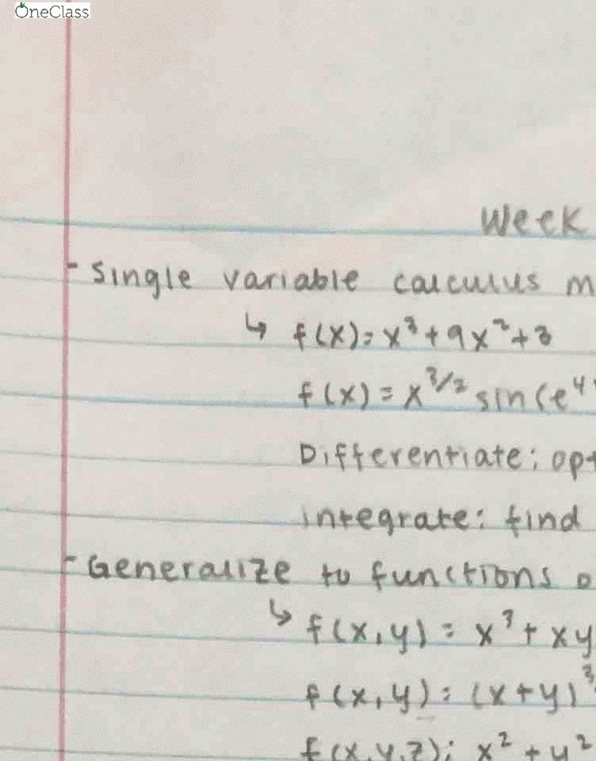 OneClass
Week
- Single variable calculus m
↳ f(x) = x³ + 9x² + 3
f(x) = x^3/2 sin(e⁴
Differentiate: opt
integrate: find
- Generalize to functions o
↳ f(x,y) = x³ + xy
f(x,y) = (x+y)³
f(x,y,z): x² + y²